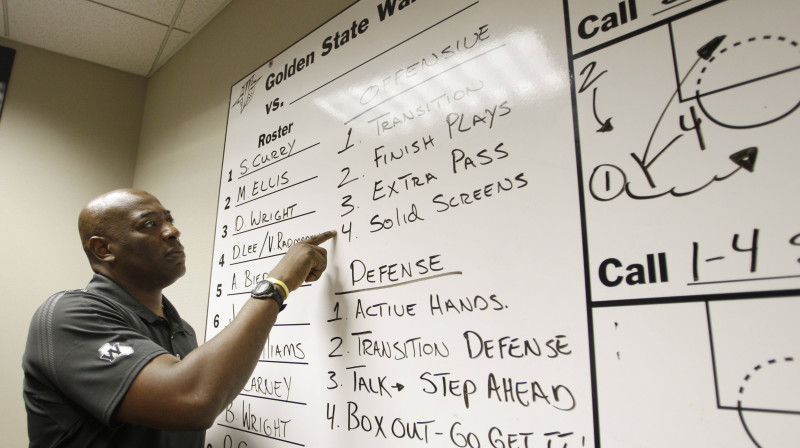 Golden State
vs.
Roster
1 S. CURRY
2 M. ELLIS
3 D. WRIGHT
4 D. LEE/V.
5 A.
6
B. WRIGHT
OFFENSIVE
1. TRANSITION
2. FINISH PLAYS
3. EXTRA PASS
4. SOLID SCREENS
DEFENSE
1. ACTIVE HANDS.
2. TRANSITION DEFENSE
3. TALK → STEP AHEAD
4. BOX OUT - GO GET IT!
Call
2
4
1
Call 1-4
W